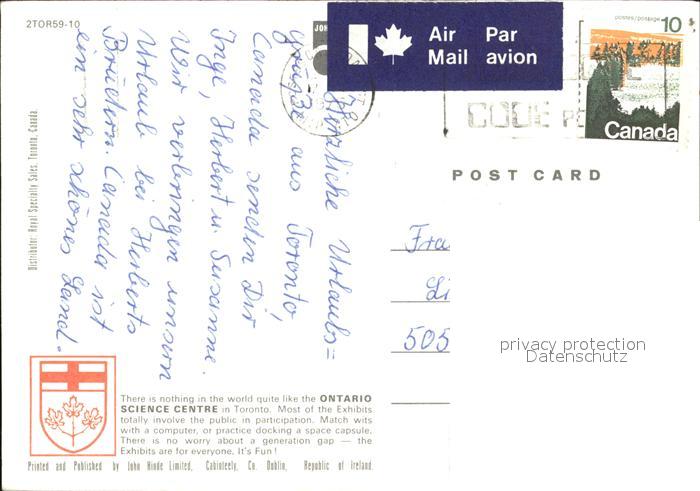 2TOR59-10
Air Par
Mail avion
postes/postage 10
Canada
CODE
POST CARD
Herzliche Urlaubs=
grüße aus Toronto,
Canada senden Dir
Inge, Herbert u. Susanne.
Wir verbringen unsern
Urlaub bei Herberts
Brüdern. Canada ist
ein sehr schönes Land.
Fra
Li
505
privacy protection
Datenschutz
Distributor: Royal Specialty Sales, Toronto, Canada.
There is nothing in the world quite like the ONTARIO
SCIENCE CENTRE in Toronto. Most of the Exhibits
totally involve the public in participation. Match wits
with a computer, or practice docking a space capsule.
There is no worry about a generation gap — the
Exhibits are for everyone. It's Fun!
Printed and Published by John Hinde Limited, Cabinteely, Co. Dublin, Republic of Ireland.